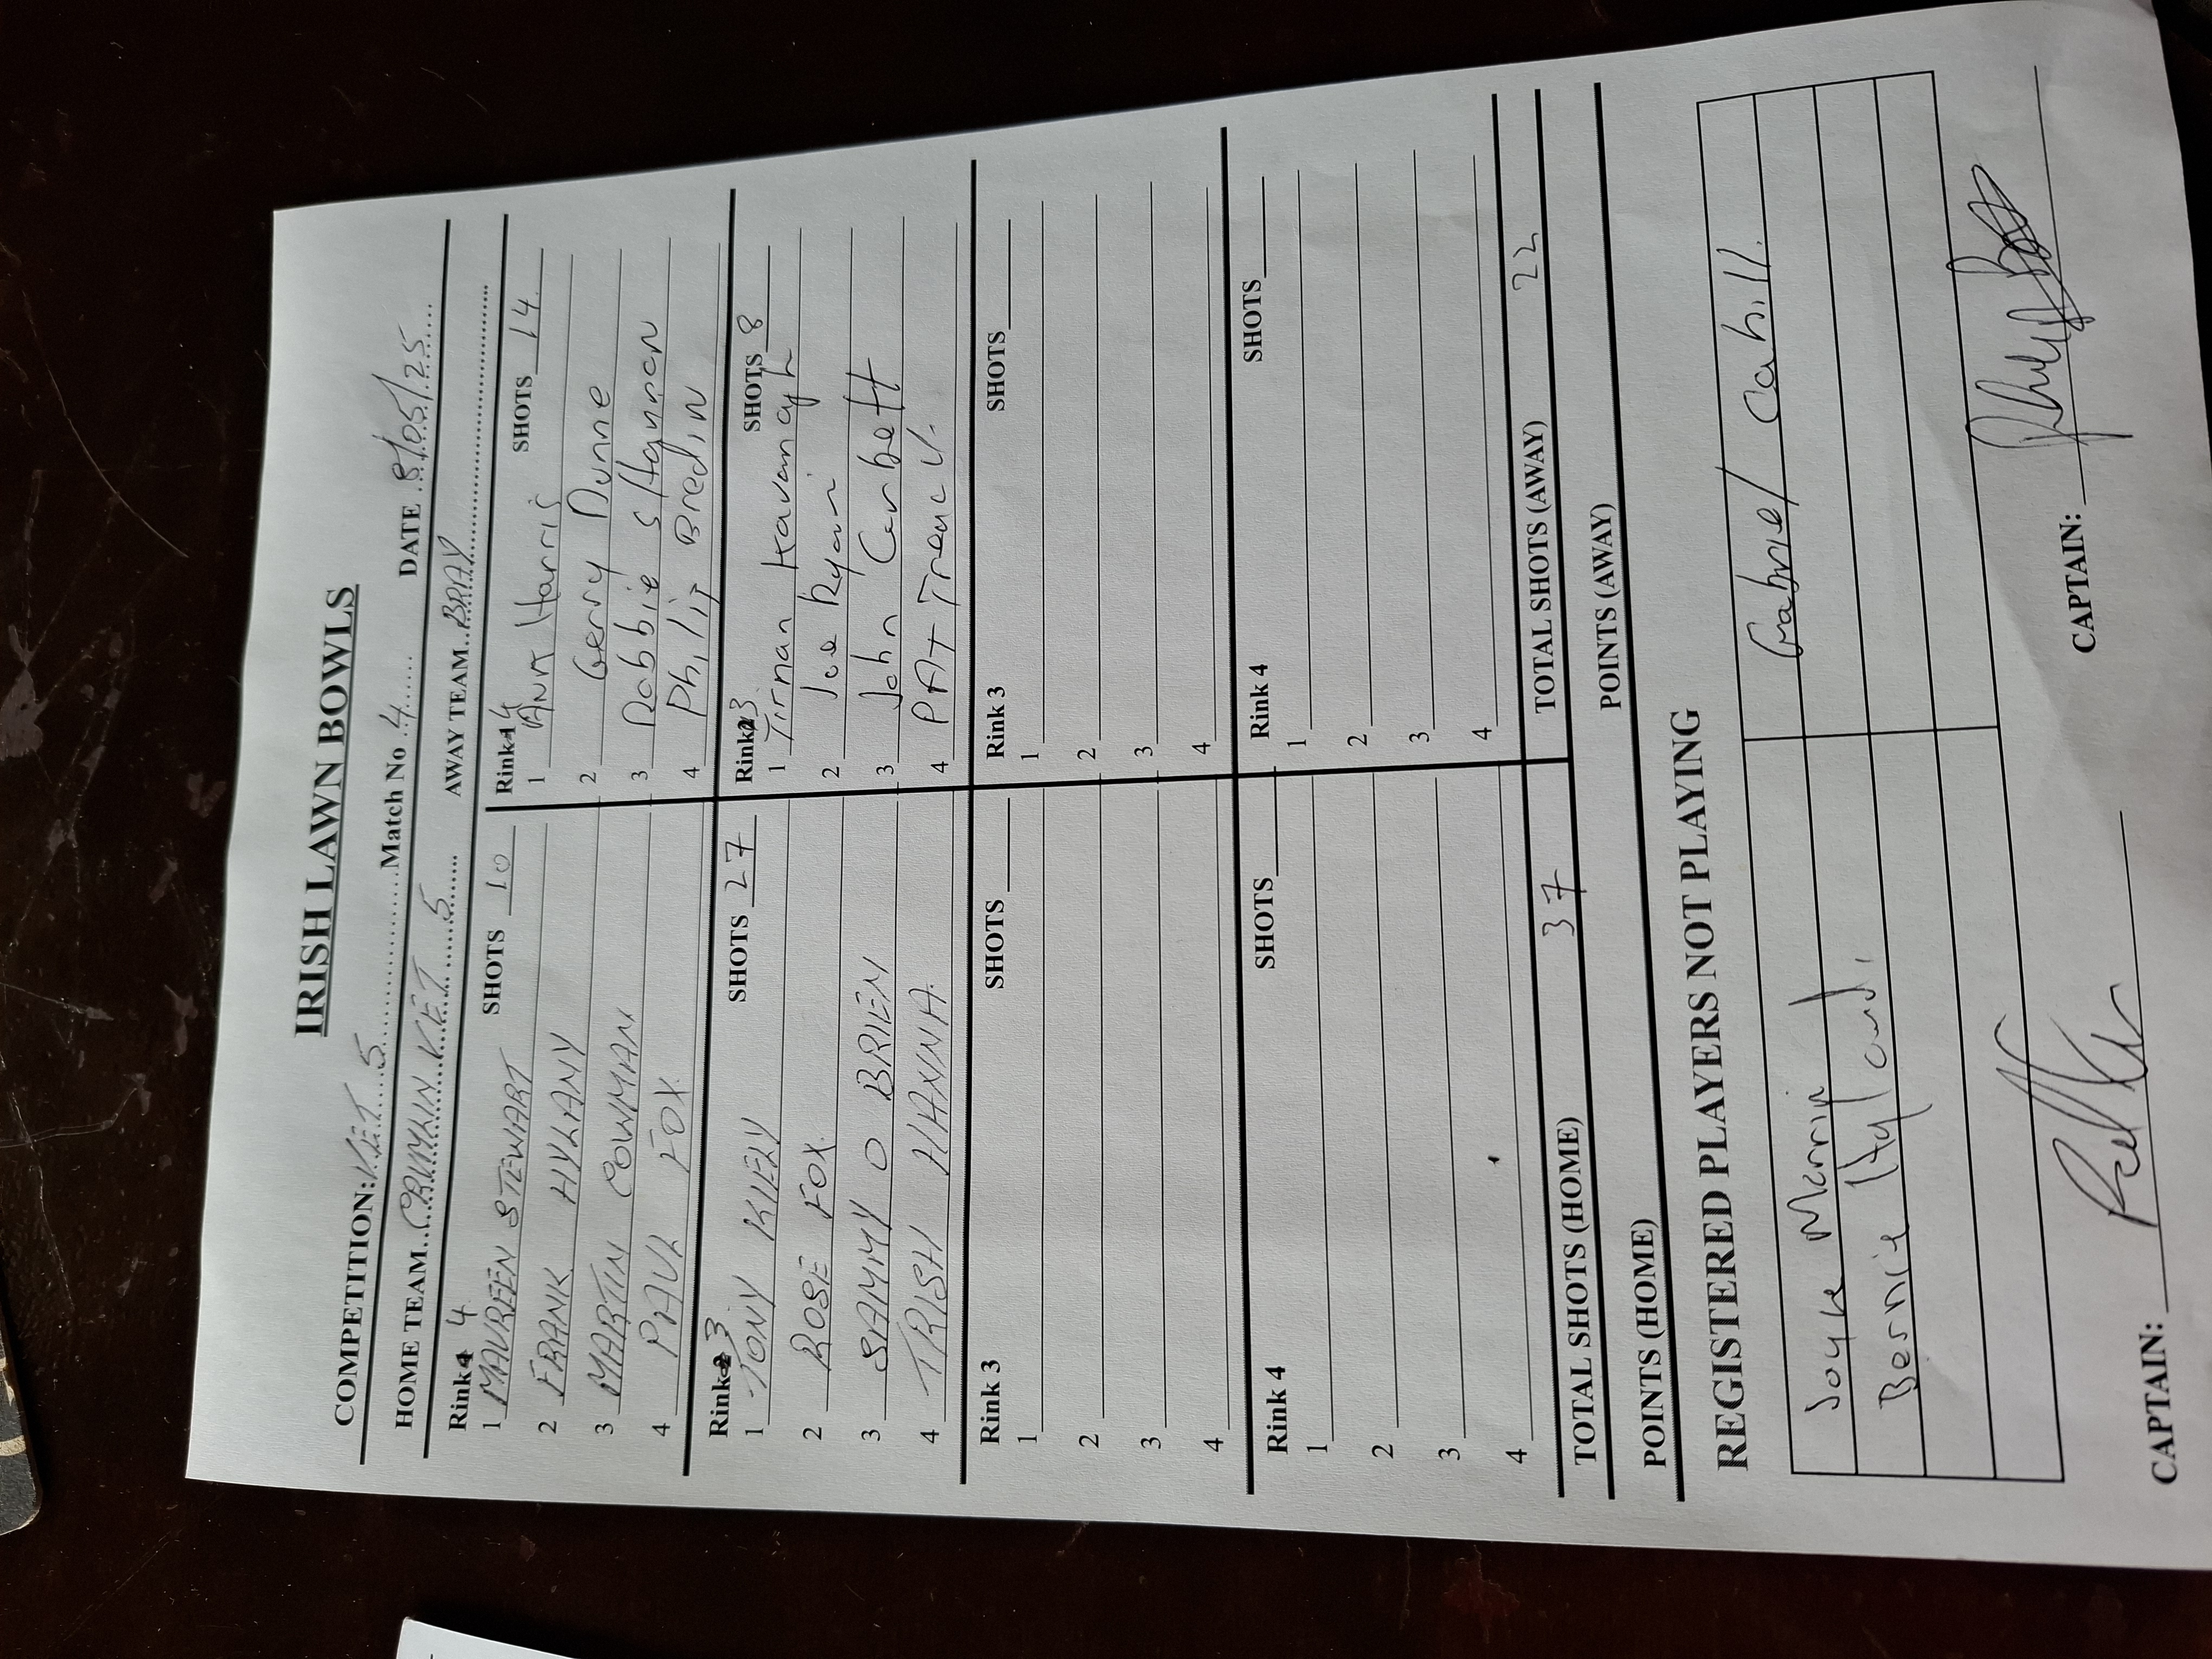 IRISH LAWN BOWLS
COMPETITION: VET 5 Match No 4 DATE 8/05/25
HOME TEAM CRUMLIN VET 5 AWAY TEAM BRAY
Rink 4 SHOTS 10 Rink 4 SHOTS 14
1 MAUREEN STEWART 1 ANN Harris
2 FRANK HYLANY 2 Gerry Dunne
3 MARTIN COWMAN 3 Robbie
4 PAUL FOX 4 Philip Bredin
Rink 3 SHOTS 27 Rink 3 SHOTS 8
1 TONY KIELY 1 Tiernan Kavanagh
2 ROSE FOX 2 Joe Ryan
3 SAMMY O BRIEN 3 John Corbett
4 TRISH HANNA 4 PAT Treacy
Rink 3 SHOTS Rink 3 SHOTS
1 1
2 2
3 3
4 4
Rink 4 SHOTS Rink 4 SHOTS
1 1
2 2
3 3
4 4
TOTAL SHOTS (HOME) 37 TOTAL SHOTS (AWAY) 22
POINTS (HOME) POINTS (AWAY)
REGISTERED PLAYERS NOT PLAYING
Joyce Marrin Gabriel Cahill
Bernie Hyland
CAPTAIN: CAPTAIN: